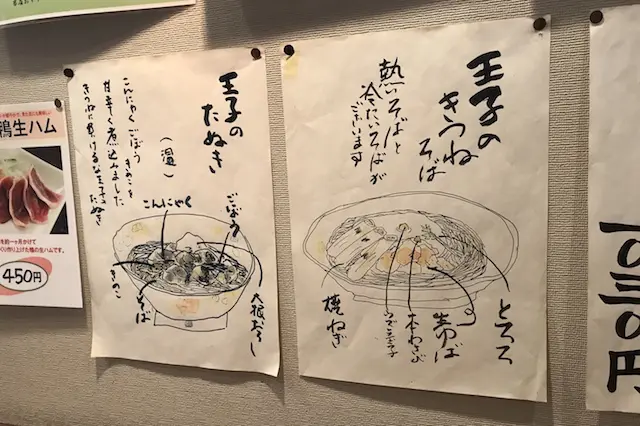 鴨生ハム
450円
王子の
たぬき
(温)
こんにゃく ごぼう きのこを
甘辛く煮込みました
きつねに負けるな王子たぬき
こんにゃく
ごぼう
きのこ
そば
大根おろし
王子の
きつね
そば
熱いそばと
冷たいそばが
ございます
焼ねぎ
うずら玉子
本わさび
生ゆば
とろろ